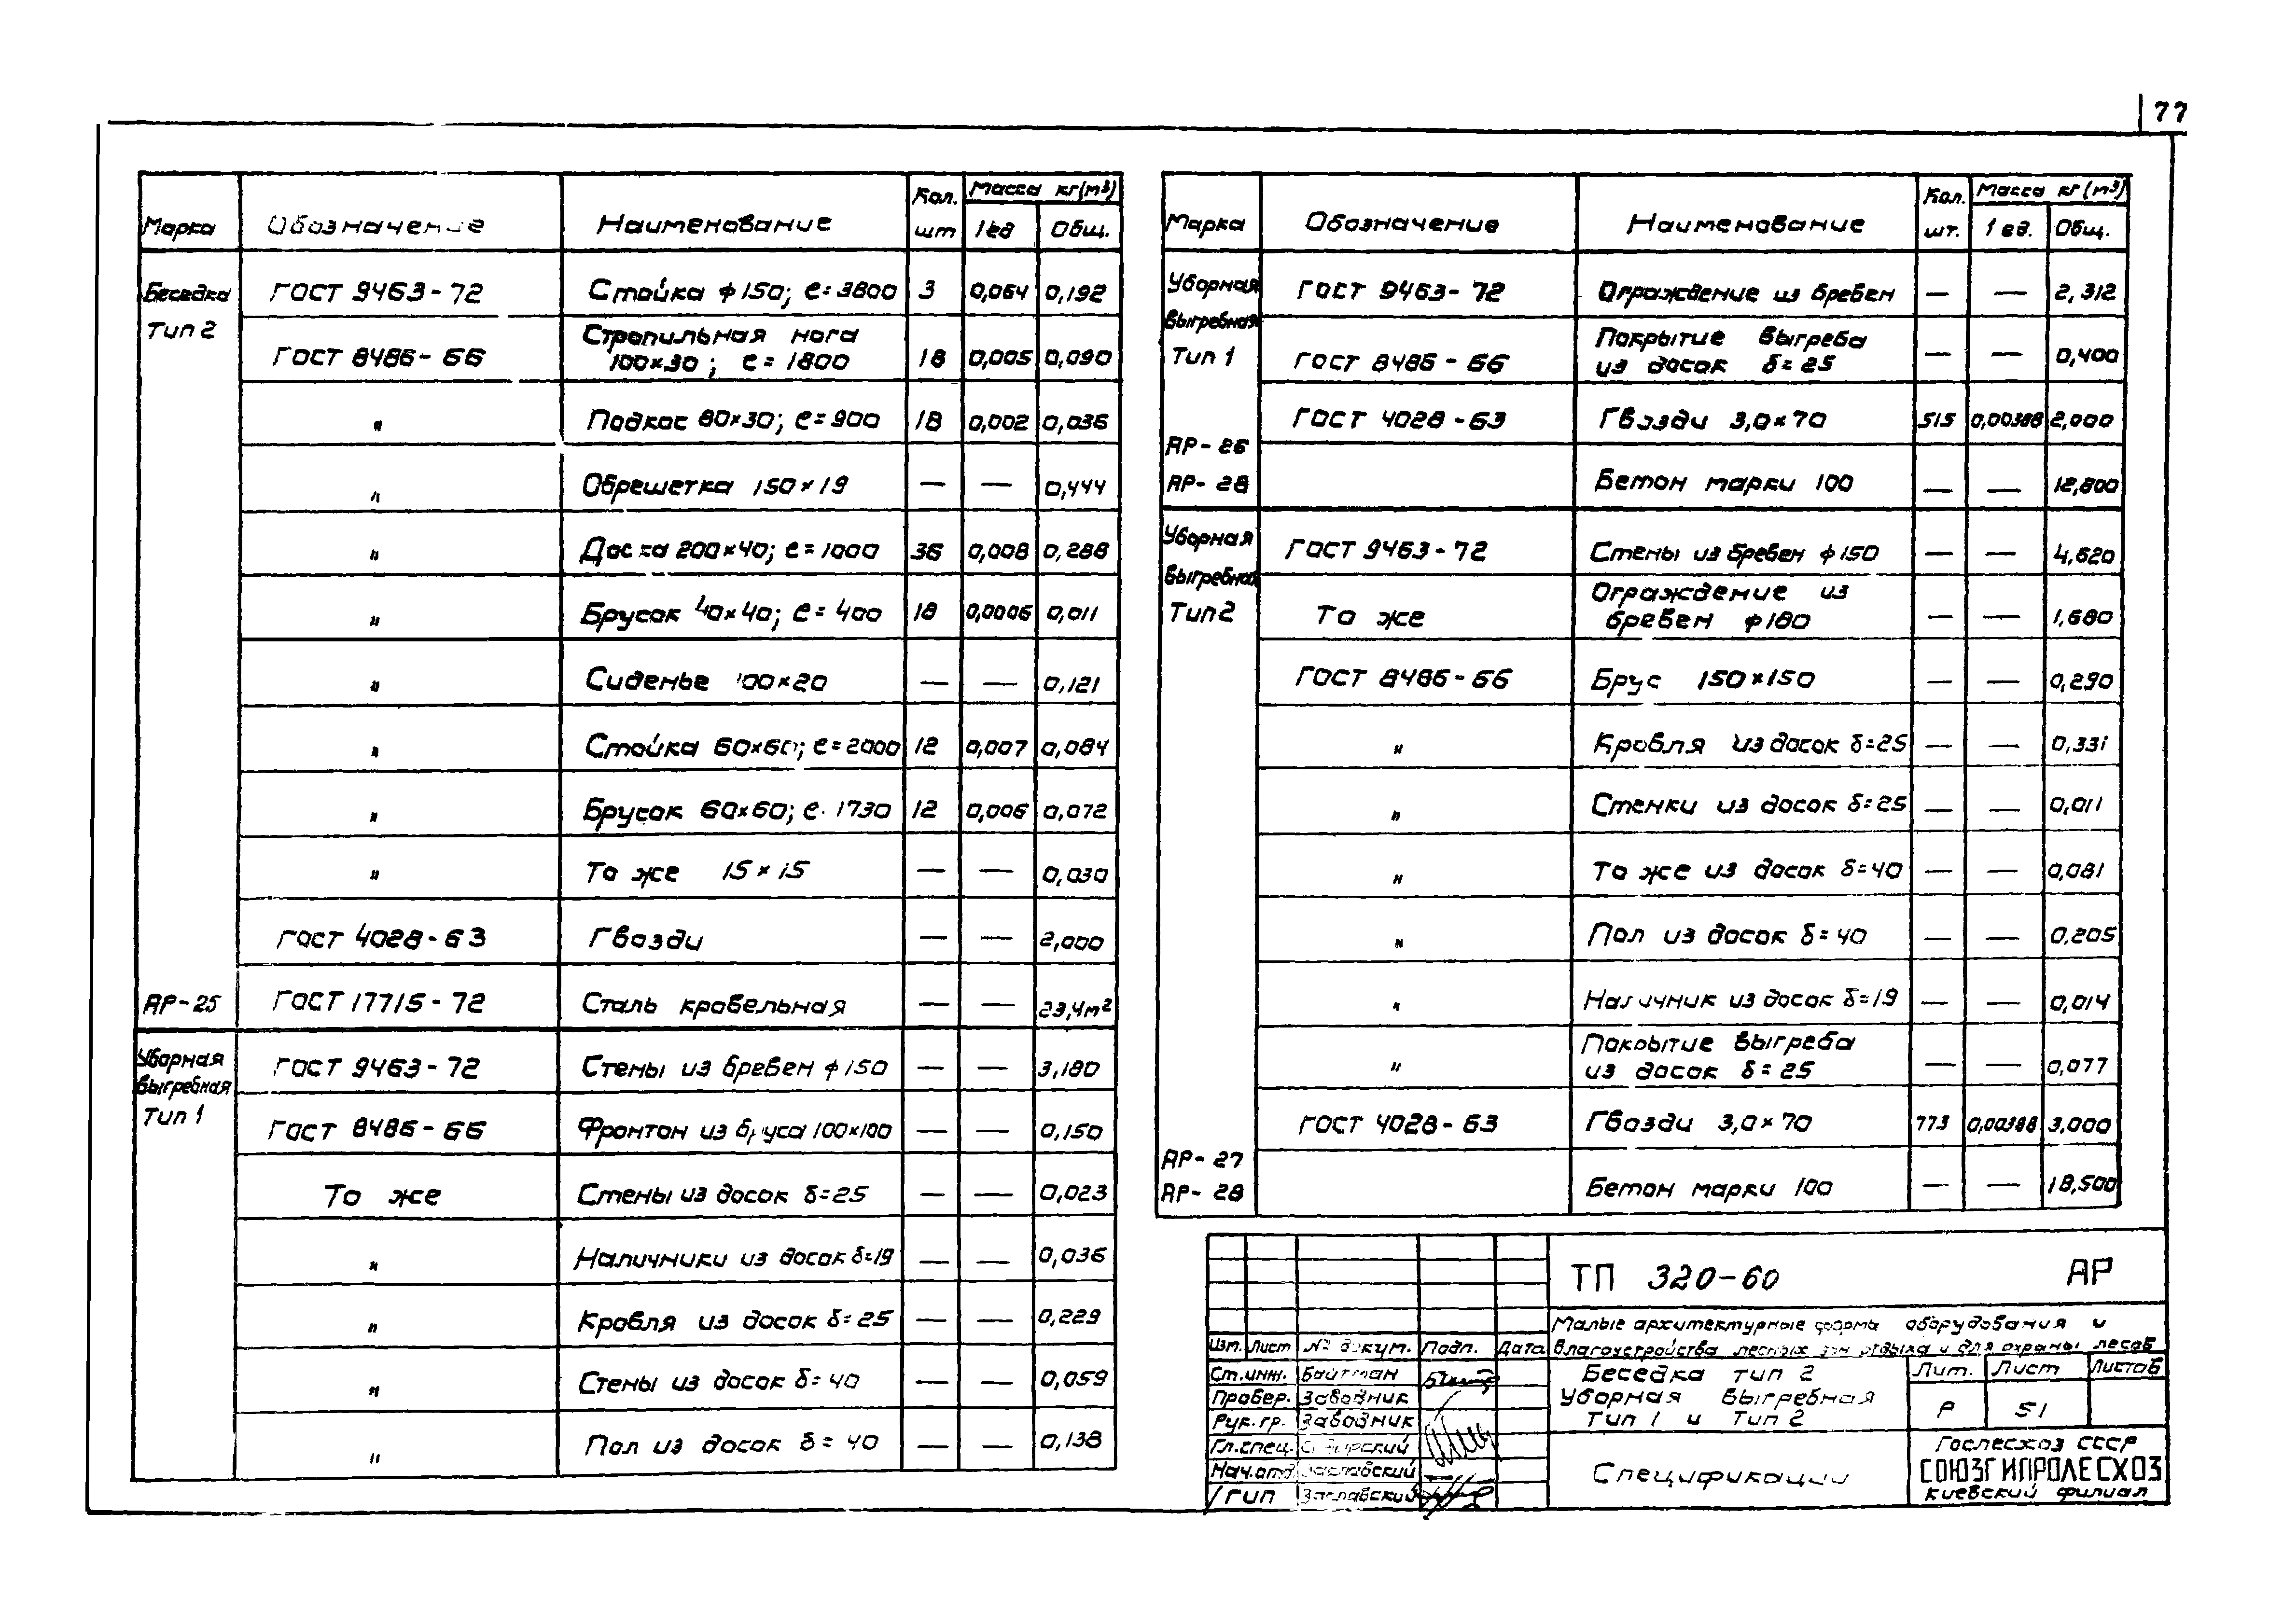 77
Марка Обозначение Наименование Кол. шт Масса кг(м³) 1ед Общ.
Беседка Тип 2 ГОСТ 9463-72 Стойка ф150; е=3800 3 0,064 0,192
ГОСТ 8486-66 Стропильная нога 100×30; е=1800 18 0,005 0,090
" Подкос 80×30; е=900 18 0,002 0,036
" Обрешетка 150×19 — — 0,444
" Доска 200×40; е=1000 36 0,008 0,288
" Брусок 40×40; е=400 18 0,0006 0,011
" Сиденье 100×20 — — 0,121
" Стойка 60×60; е=2000 12 0,007 0,084
" Брусок 60×60; е. 1730 12 0,006 0,072
" То же 15×15 — — 0,030
ГОСТ 4028-63 Гвозди — — 2,000
АР-25 ГОСТ 17715-72 Сталь кровельная — — 23,4м²
Уборная выгребная Тип 1 ГОСТ 9463-72 Стены из бревен ф150 — — 3,180
ГОСТ 8486-66 Фронтон из бруса 100×100 — — 0,150
То же Стены из досок δ=25 — — 0,023
" Наличники из досок δ=19 — — 0,036
" Кровля из досок δ=25 — — 0,229
" Стены из досок δ=40 — — 0,059
" Пол из досок δ=40 — — 0,138
Марка Обозначение Наименование Кол. шт. Масса кг(м³) 1 ед. Общ.
Уборная выгребная Тип 1 ГОСТ 9463-72 Ограждение из бревен — — 2,312
ГОСТ 8486-66 Покрытие выгреба из досок δ=25 — — 0,400
ГОСТ 4028-63 Гвозди 3,0×70 515 0,00388 2,000
АР-26
АР-28 Бетон марки 100 — — 12,800
Уборная выгребная Тип 2 ГОСТ 9463-72 Стены из бревен ф150 — — 4,620
То же Ограждение из бревен ф180 — — 1,680
ГОСТ 8486-66 Брус 150×150 — — 0,290
" Кровля из досок δ=25 — — 0,331
" Стенки из досок δ=25 — — 0,011
" То же из досок δ=40 — — 0,081
" Пол из досок δ=40 — — 0,205
" Наличник из досок δ=19 — — 0,014
" Покрытие выгреба из досок δ=25 — — 0,077
ГОСТ 4028-63 Гвозди 3,0×70 773 0,00388 3,000
АР-27
АР-28 Бетон марки 100 — — 18,500
ТП 320-60 АР
Малые архитектурные формы оборудования и
благоустройства лесных зон отдыха и для охраны лесов
Изм. Лист № докум. Подп. Дата
Ст.инж. Войтман
Провер. Заводник
Рук.гр. Заводник
Гл.спец.
Нач.отд. Заславский
ГИП Заславский
Беседка тип 2
Уборная выгребная
Тип 1 и Тип 2
Лит. Лист Листов
Р 51
Спецификации
Гослесхоз СССР
СОЮЗГИПРОЛЕСХОЗ
Киевский филиал